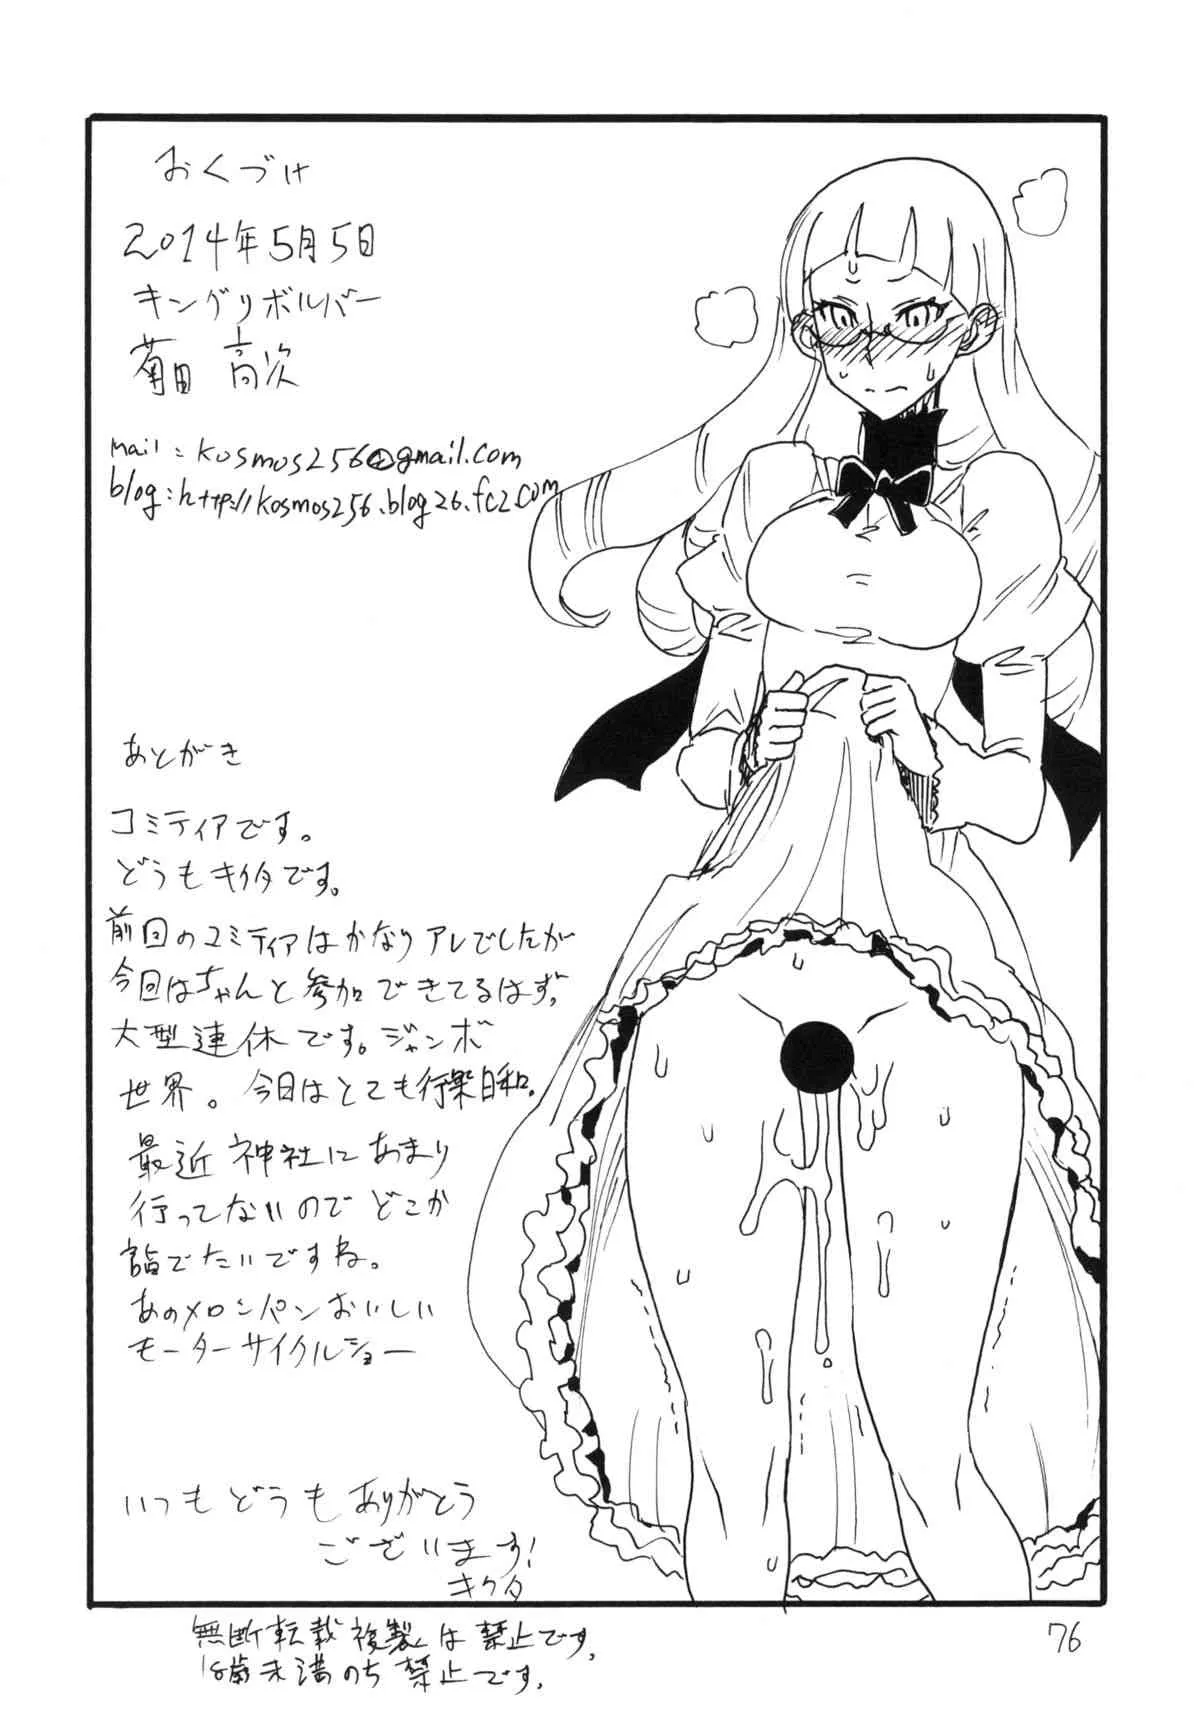 おくづけ
2014年5月5日
キングリボルバー
菊田 高次
mail:kosmos256@gmail.com
blog:http://kosmos256.blog26.fc2.com
あとがき
コミティアです。
どうもキクタです。
前回のコミティアはかなりアレでしたが
今回はちゃんと参加できてるはず。
大型連休です。ジャンボ
世界。今日はとても行楽日和。
最近神社にあまり
行ってないのでどこか
詣でたいですね。
あのメロンパンおいしい
モーターサイクルショー
いつもどうもありがとう
ございます!
キクタ
無断転載複製は禁止です。
18歳未満のち禁止です。
76